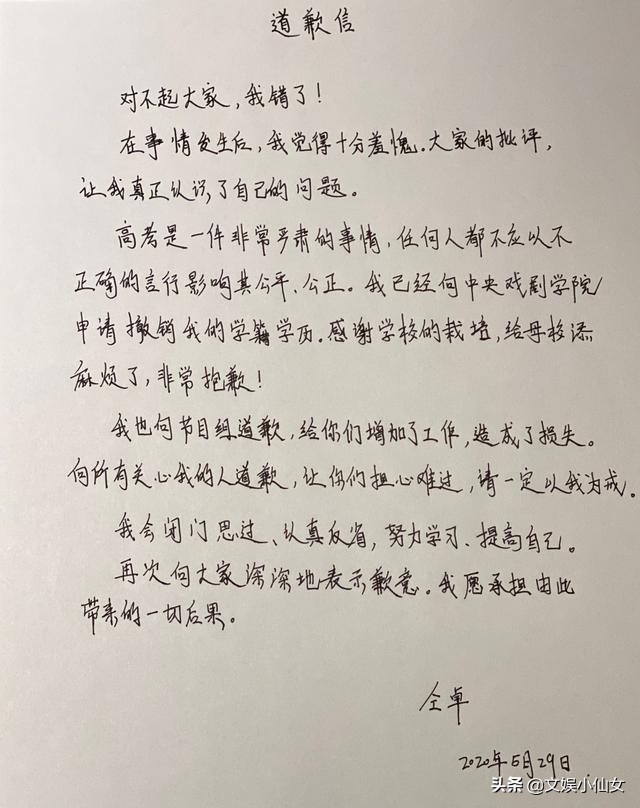 道歉信
对不起大家，我错了！
在事情发生后，我觉得十分羞愧。大家的批评，
让我真正认识了自己的问题。
高考是一件非常严肃的事情，任何人都不应以不
正确的言行影响其公平、公正。我已经向中央戏剧学院
申请撤销我的学籍学历。感谢学校的栽培，给母校添
麻烦了，非常抱歉！
我也向节目组道歉，给你们增加了工作，造成了损失。
向所有关心我的人道歉，让你们担心难过，请一定以我为戒。
我会闭门思过、认真反省，努力学习、提高自己。
再次向大家深深地表示歉意。我愿承担由此
带来的一切后果。
仝卓
2020年5月29日
头条 @文娱小仙女